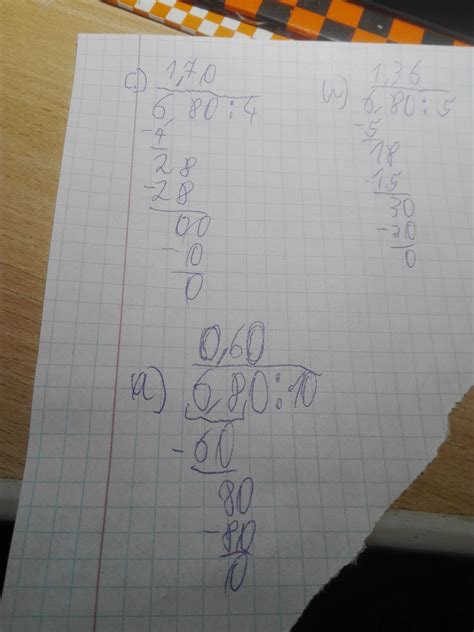 c) 1,70
6 80 : 4
-4
28
-28
00
-10
0
b) 1,36
6,80 : 5
-5
18
-15
30
-30
0
0,60
a) 6,8,0 : 10
-60
80
-80
10